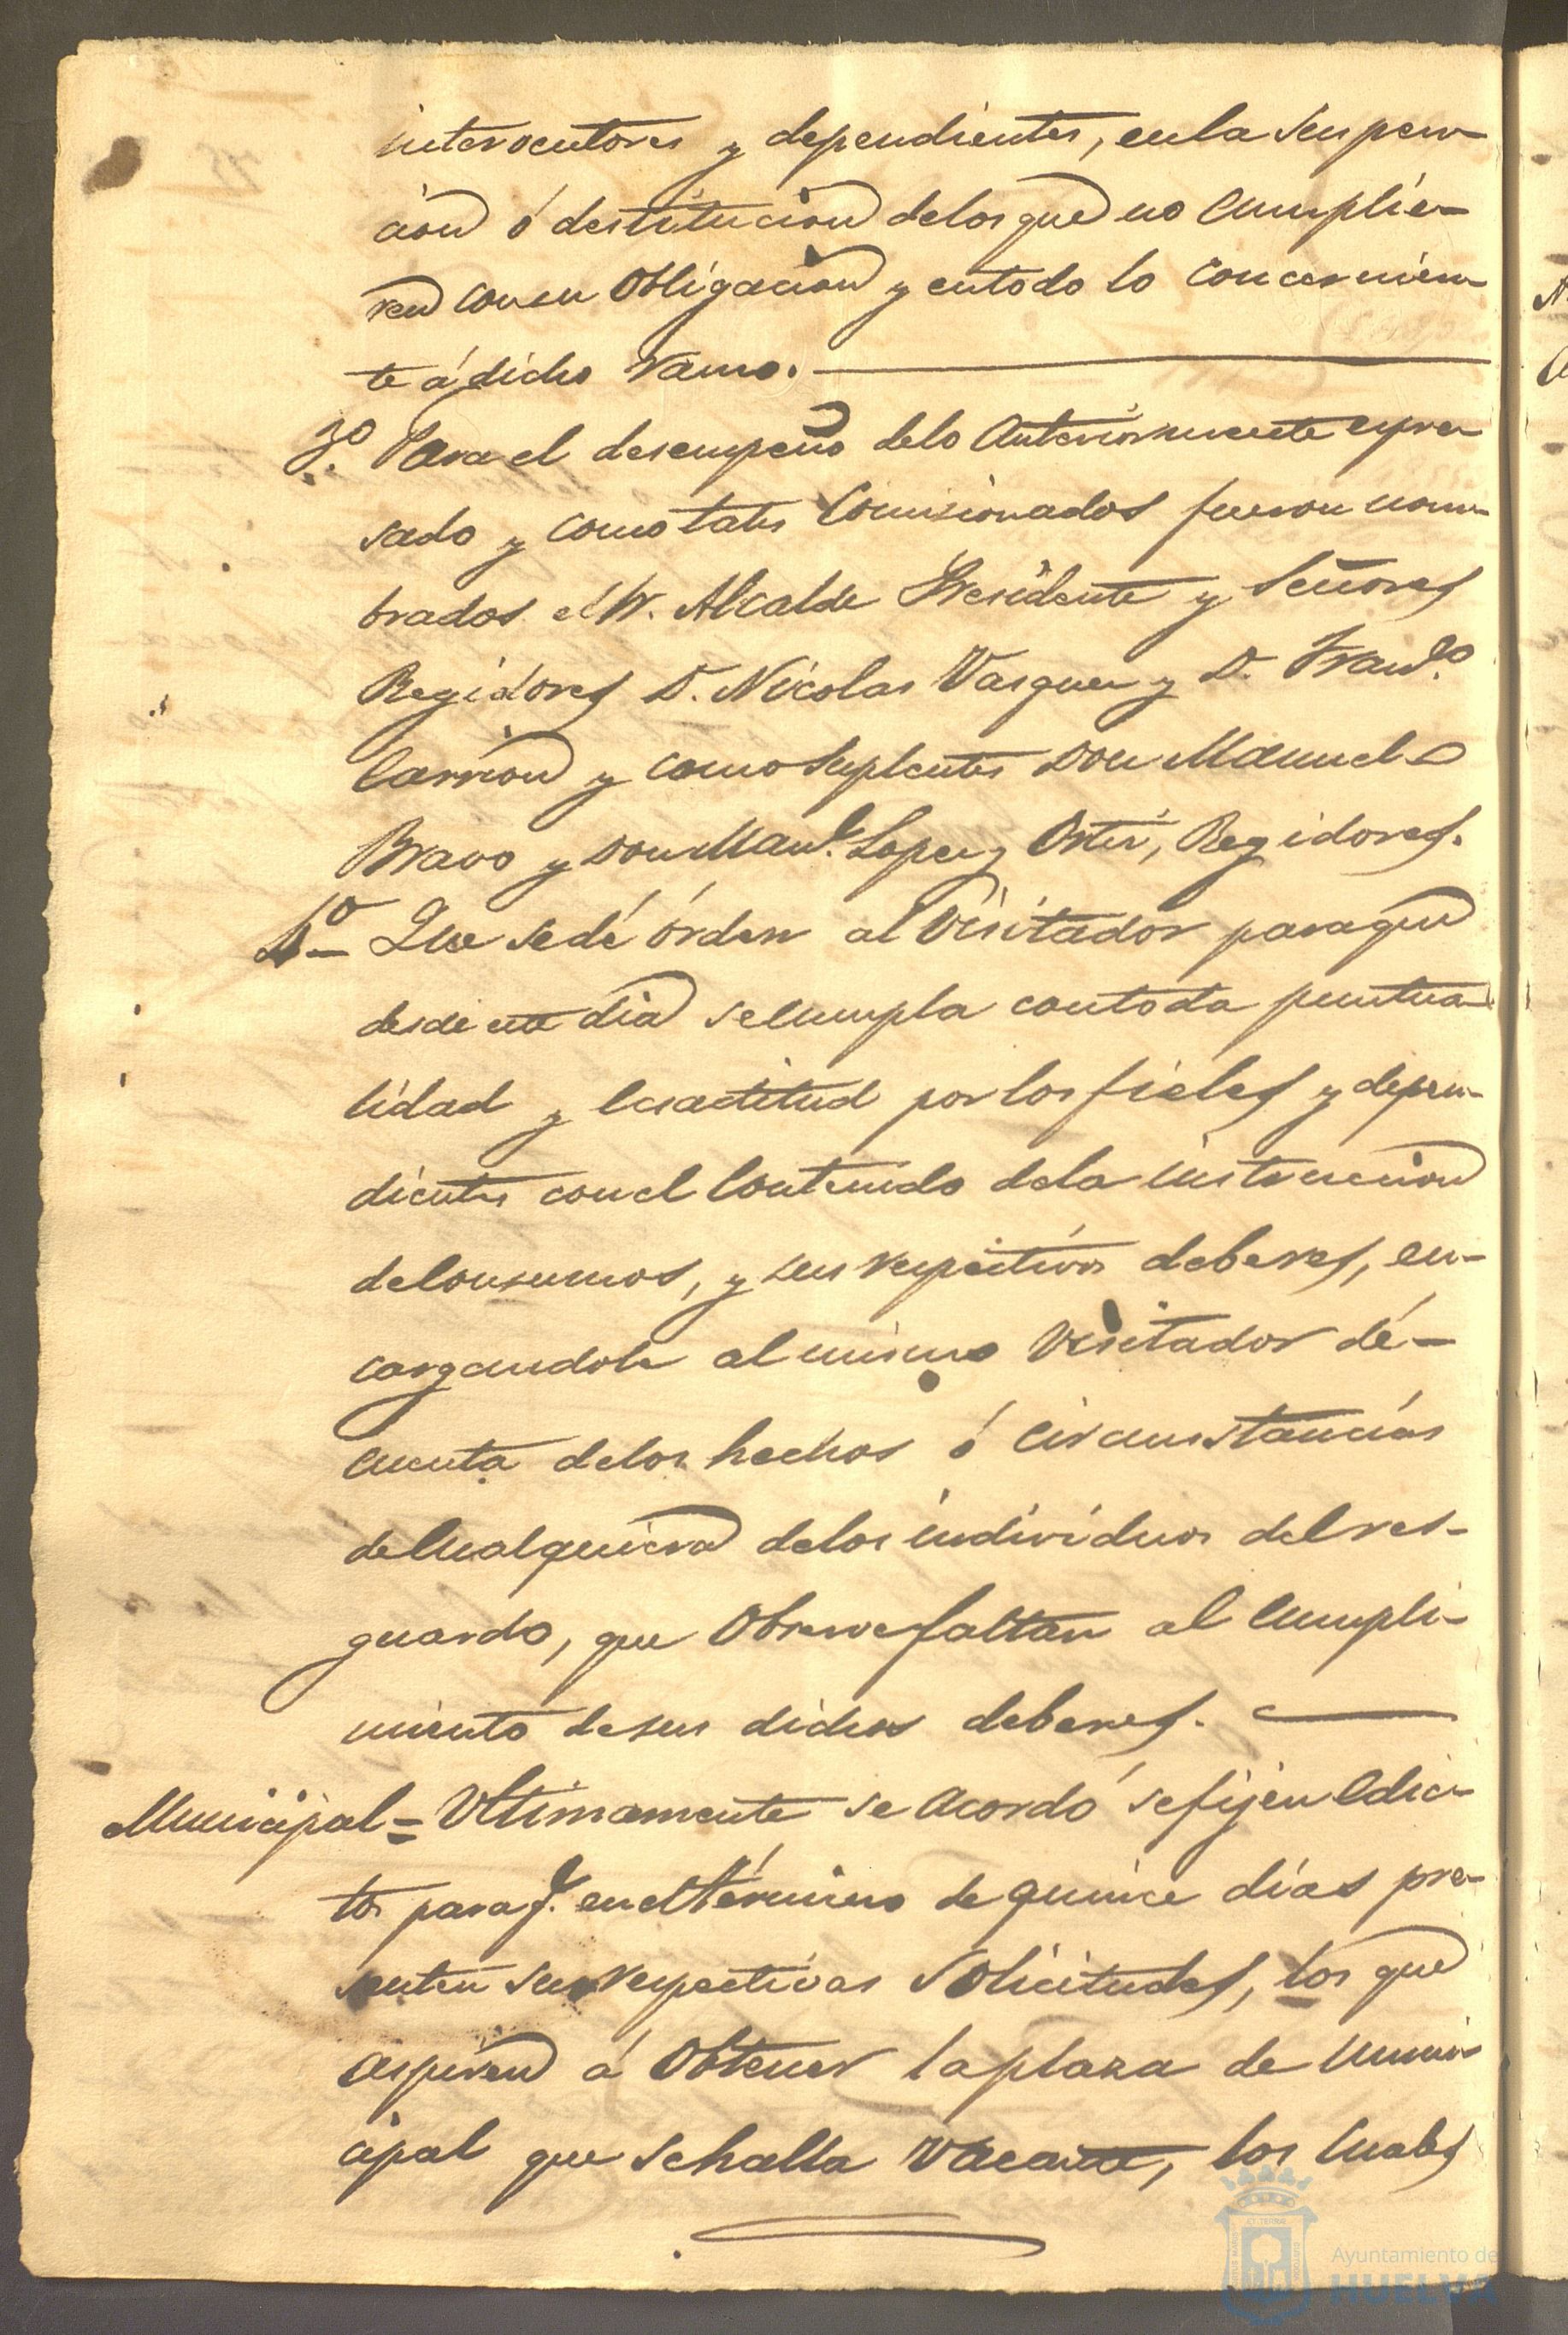 interocutores y dependientes, en la suspen-
cion ó destitucion de los que no Cumplie-
ren con su Obligacion y en todo lo concernien-
te á dicho ramo.
3º. Para el desempeño de lo Anteriormente espre-
sado y como tales Comisionados fueron nom-
brados el Sr. Alcalde Presidente y Señores
Regidores D. Nicolas Vasquez y D. Franco.
Carrion y como Suplentes Don Manuel
Bravo y Don Manl. Lopez Ortiz, Regidores.
4º Que se dé órden al Visitador para que
desde este dia se Cumpla con toda puntua-
lidad y Esactitud por los fieles y depen-
dientes con el Contenido de la instruccion
de Consumos, y sus respectivos deberes, en-
cargandole al mismo Visitador dé
cuenta de los hechos ó Circunstancias
de Cualquiera de los individuos del res-
guardo, que Observe faltan al Cumpli-
miento de sus dichos deberes.
Municipal = Ultimamente se acordó se fijen Edic-
tos para q. en el término de quince dias pre-
senten sus respectivas Solicitudes, los que
aspiren á Obtener la plaza de Muni-
cipal que se halla Vacante, los Cuales
Ayuntamiento de
HUELVA